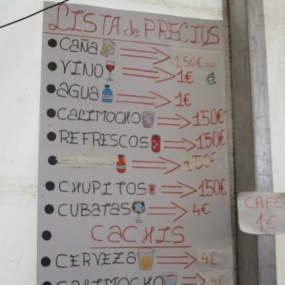 LISTA de PRECIOS
CAÑA 1.50€
VINO 1€
AGUA 1€
CALIMOCHO 1.50€
REFRESCOS 1.50€
CHUPITOS 1.50€
CUBATAS 4€
CACHIS
CERVEZA 4€
CALIMOCHO 4€
CAFÉ
1€